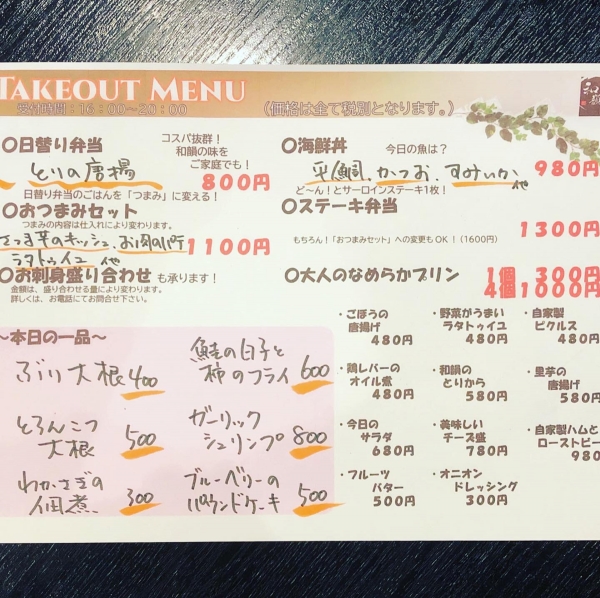 TAKEOUT MENU
受付時間：16：00～20：00
（価格は全て税別となります。）
〇日替り弁当
コスパ抜群！
和韻の味を
ご家庭でも！
とりの唐揚
800円
日替り弁当のごはんを「つまみ」に変える！
〇おつまみセット
つまみの内容は仕入れにより変わります。
さつま芋のキッシュ、お肉
ラタトゥイユ 他
1100円
〇お刺身盛り合わせ も承ります！
金額は、盛り合わせる量により変わります。
詳しくは、お電話にてお問合せ下さい。
〇海鮮丼
今日の魚は？
平鯛、かつお、すみいか 他
980円
ど～ん！とサーロインステーキ1枚！
〇ステーキ弁当
1300円
もちろん！「おつまみセット」への変更もOK！（1600円）
〇大人のなめらかプリン
1個 300円
4個1000円
～本日の一品～
ぶり大根 400
とろんこつ
大根 500
わかさぎの
佃煮 300
鮭の白子と
柿のフライ 600
ガーリック
シュリンプ 800
ブルーベリーの
パウンドケーキ 500
・ごぼうの
唐揚げ
480円
・野菜がうまい
ラタトゥイユ
480円
・自家製
ピクルス
480円
・鶏レバーの
オイル煮
480円
・和韻の
とりから
580円
・里芋の
唐揚げ
580円
・今日の
サラダ
680円
・美味しい
チーズ盛
780円
・自家製ハムと
ローストビー
980
・フルーツ
バター
500円
・オニオン
ドレッシング
300円